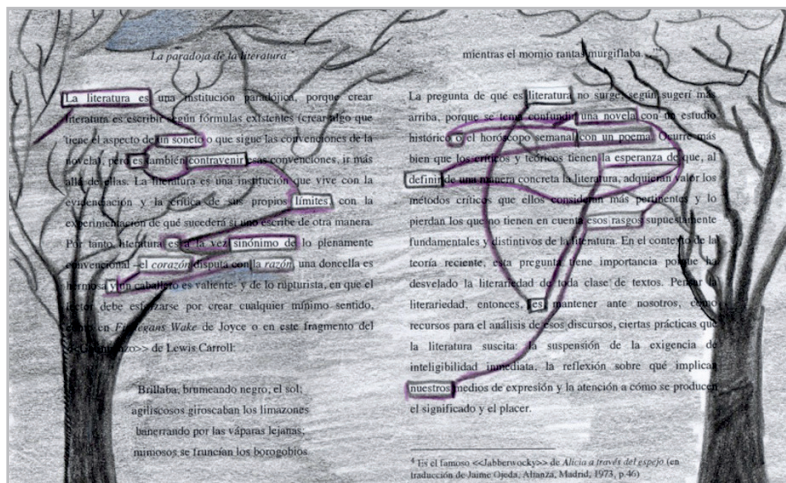 La paradoja de la literatura
La literatura es una institución paradójica, porque crear
literatura es escribir según fórmulas existentes (crear algo que
tiene el aspecto de un soneto o que sigue las convenciones de la
novela), pero es también contravenir esas convenciones, ir más
allá de ellas. La literatura es una institución que vive con la
evidenciación y la crítica de sus propios límites con la
experimentación de qué sucederá si uno escribe de otra manera.
Por tanto, literatura es a la vez sinónimo de lo plenamente
convencional –el corazón disputa con la razón, una doncella es
hermosa y un caballero es valiente- y de lo rupturista, en que el
lector debe esforzarse por crear cualquier mínimo sentido,
como en Finnegans Wake de Joyce o en este fragmento del
>> de Lewis Carroll:
Brillaba, brumeando negro, el sol;
agiliscosos giroscaban los limazones
banerrando por las váparas lejanas;
mimosos se fruncían los borogobios
mientras el momio rantas murgiflaba.
La pregunta de qué es literatura no surge, según sugerí más
arriba, porque se tema confundir una novela con un estudio
histórico o el horóscopo semanal con un poema. Ocurre más
bien que los críticos y teóricos tienen la esperanza de que, al
definir de una manera concreta la literatura, adquieran valor los
métodos críticos que ellos consideran más pertinentes y lo
pierdan los que no tienen en cuenta esos rasgos supuestamente
fundamentales y distintivos de la literatura. En el contexto de la
teoría reciente, esta pregunta tiene importancia porque ha
desvelado la literariedad de toda clase de textos. Pensar la
literariedad, entonces, es mantener ante nosotros, como
recursos para el análisis de esos discursos, ciertas prácticas que
la literatura suscita: la suspensión de la exigencia de
inteligibilidad inmediata, la reflexión sobre qué implican
nuestros medios de expresión y la atención a cómo se producen
el significado y el placer.
4 Es el famoso <<Jabberwocky>> de Alicia a través del espejo (en
traducción de Jaime Ojeda, Alianza, Madrid, 1973, p.46)